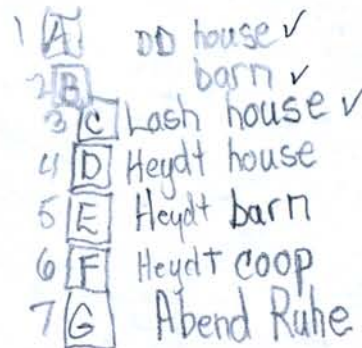 1 A DD house ✓
2 B barn ✓
3 C Lash house ✓
4 D Heydt house
5 E Heydt barn
6 F Heydt coop
7 G Abend Ruhe